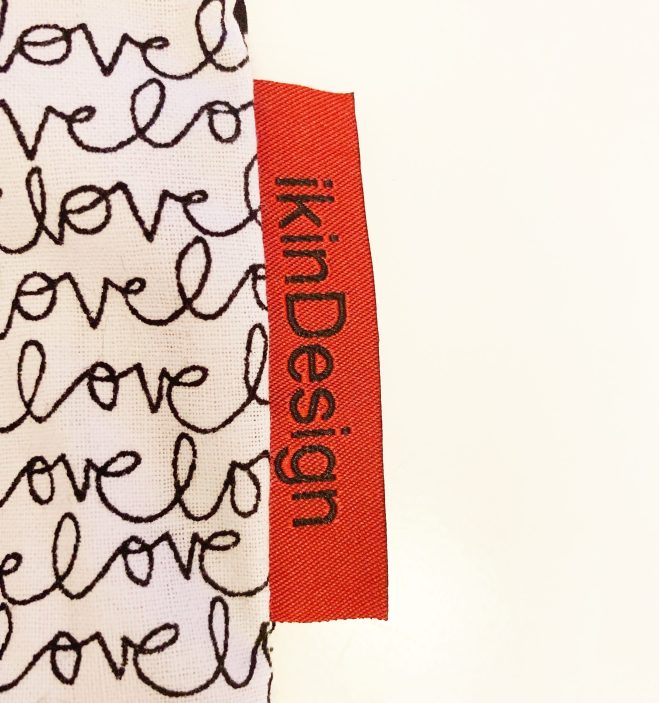 lovel
velo
elovel
ovelo
lovel
ovelo
elove
lovel
ikinDesign